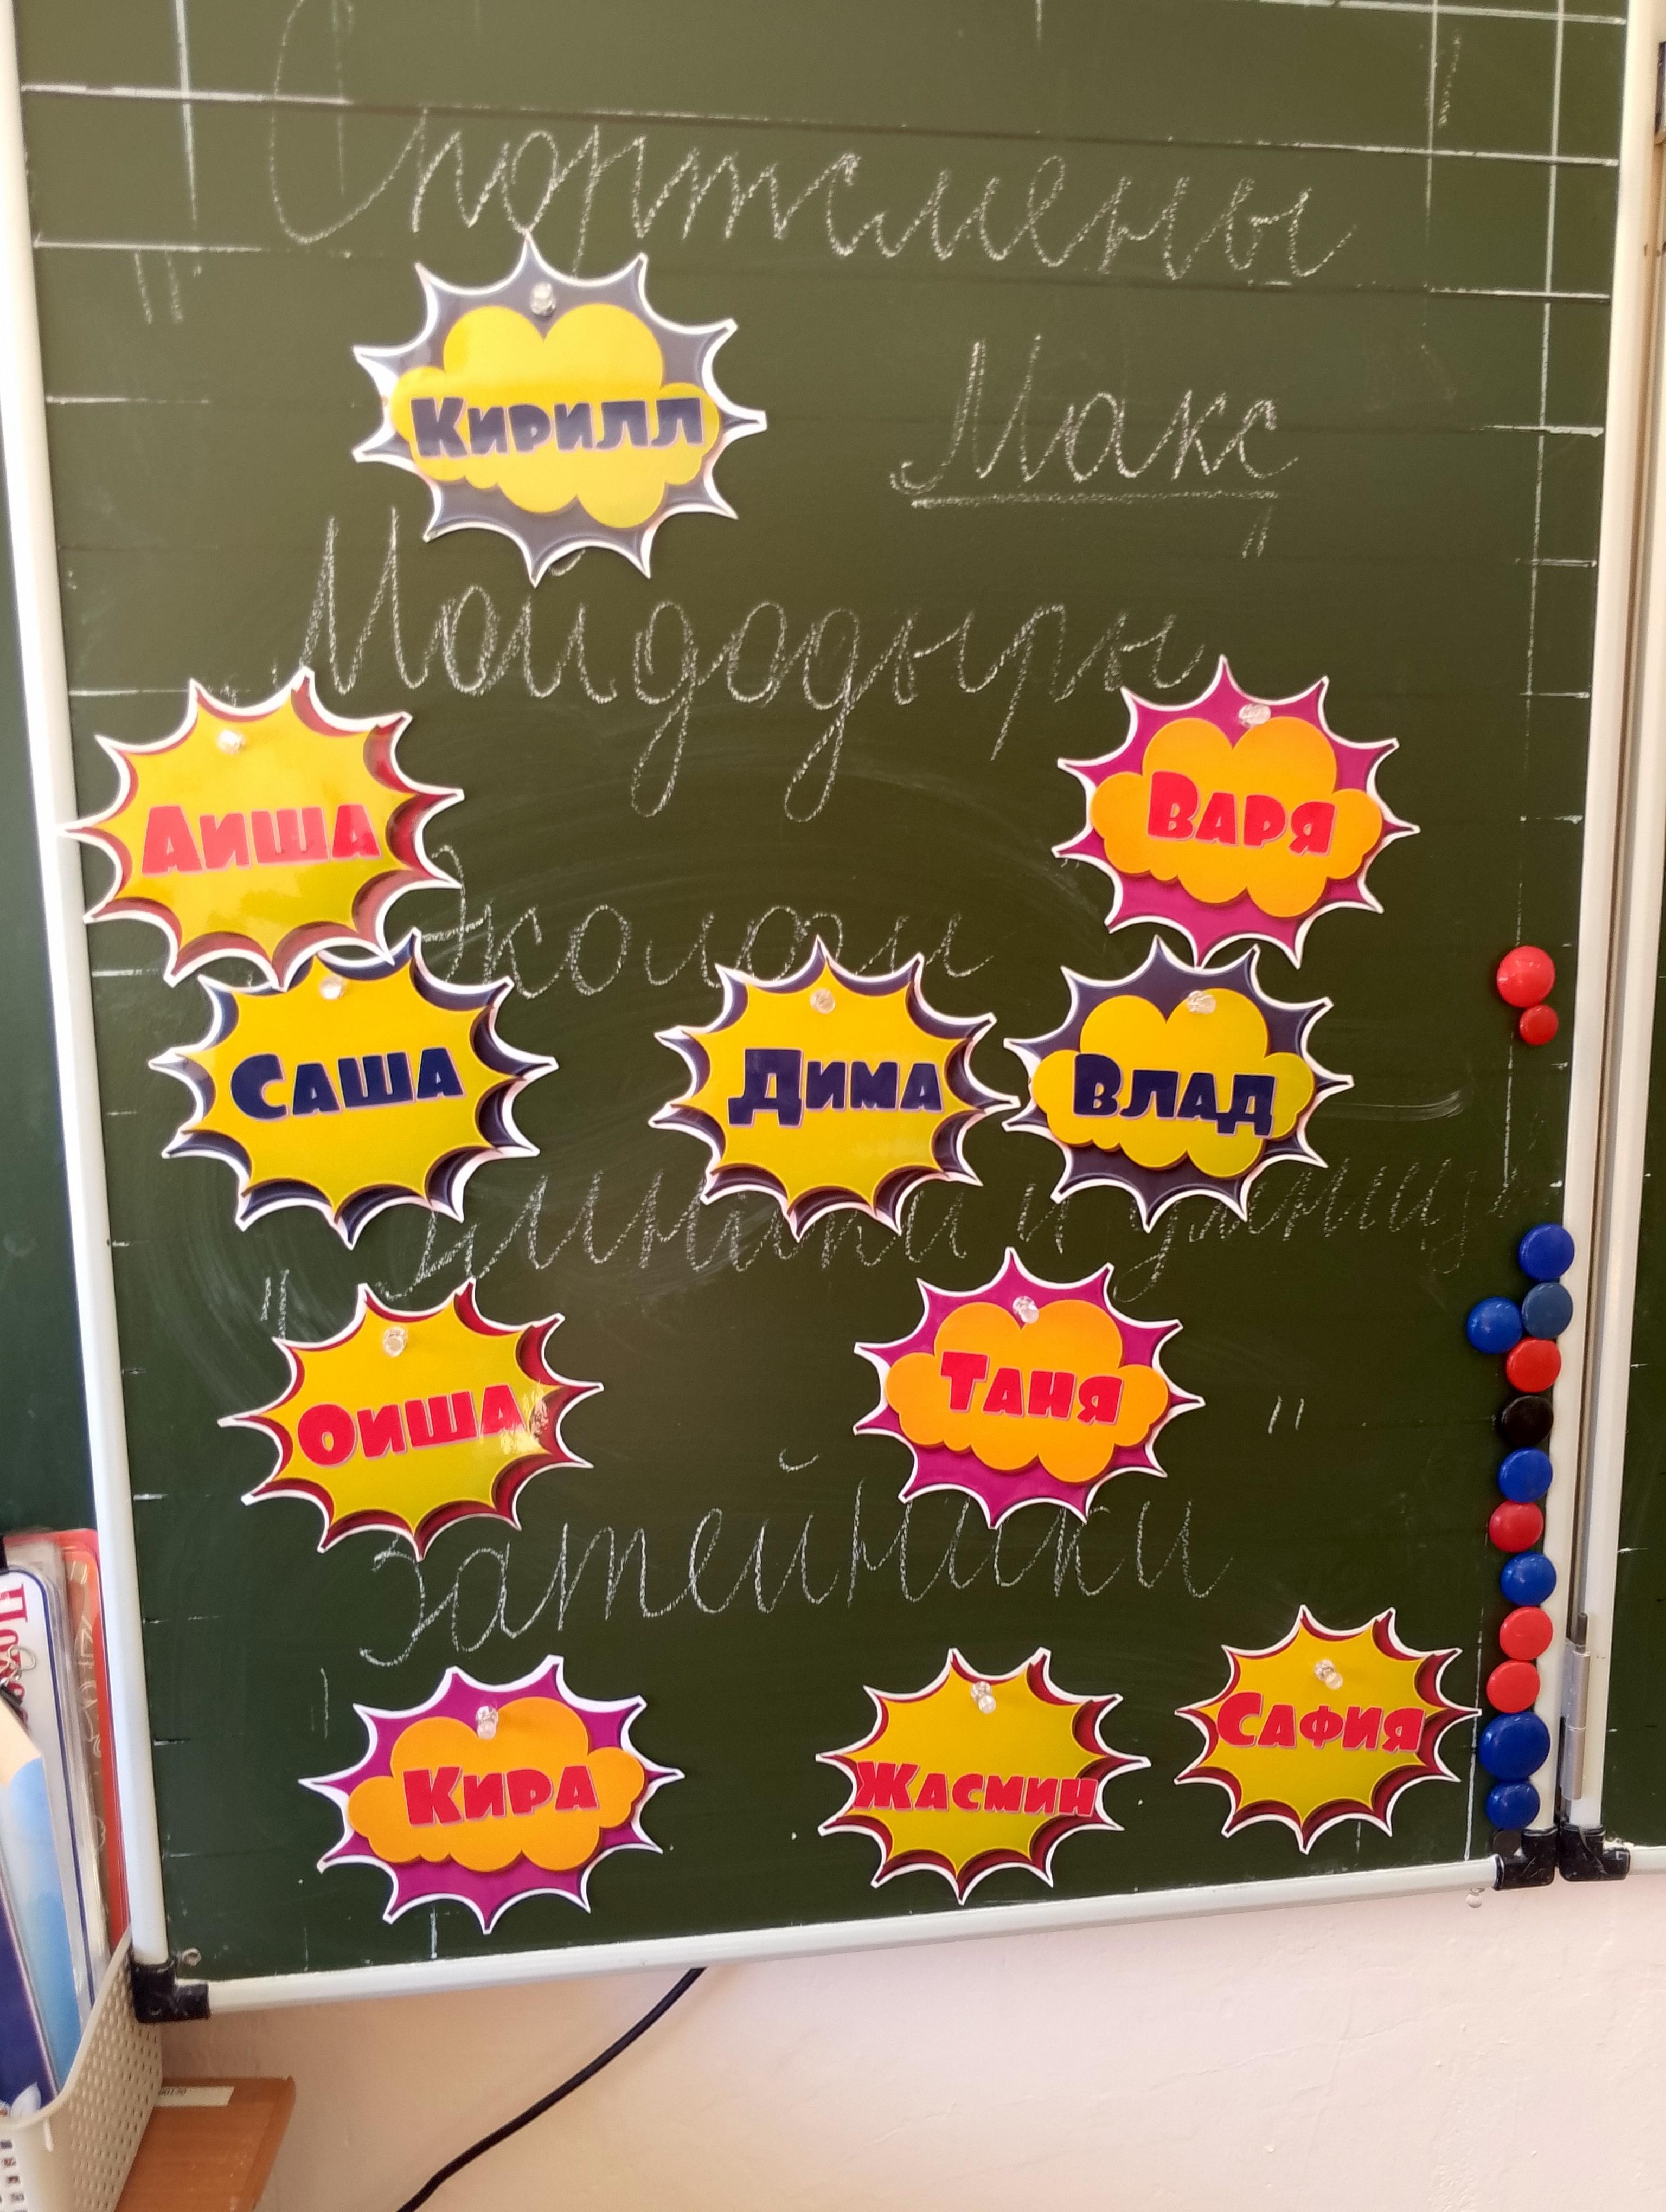 Спортсмены
Кирилл Макс
Мойдодыры
Аиша Варя
Экологи
Саша Дима Влад
Умники и умницы
Оиша Таня
Затейники
Кира Жасмин Сафия